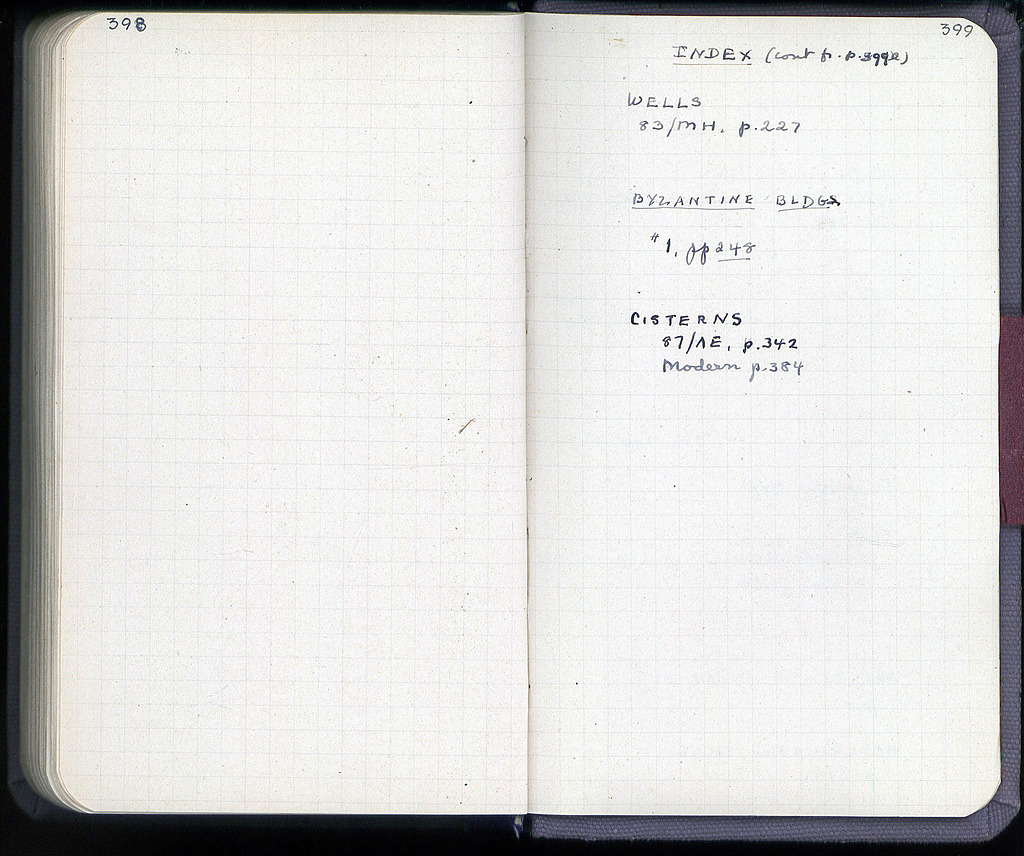 398
399
INDEX (cont fr. p.399a)
WELLS
83/MH, p.227
BYZANTINE BLDGS
#1, pp 248
CISTERNS
87/ΛE, p.342
Modern p.384